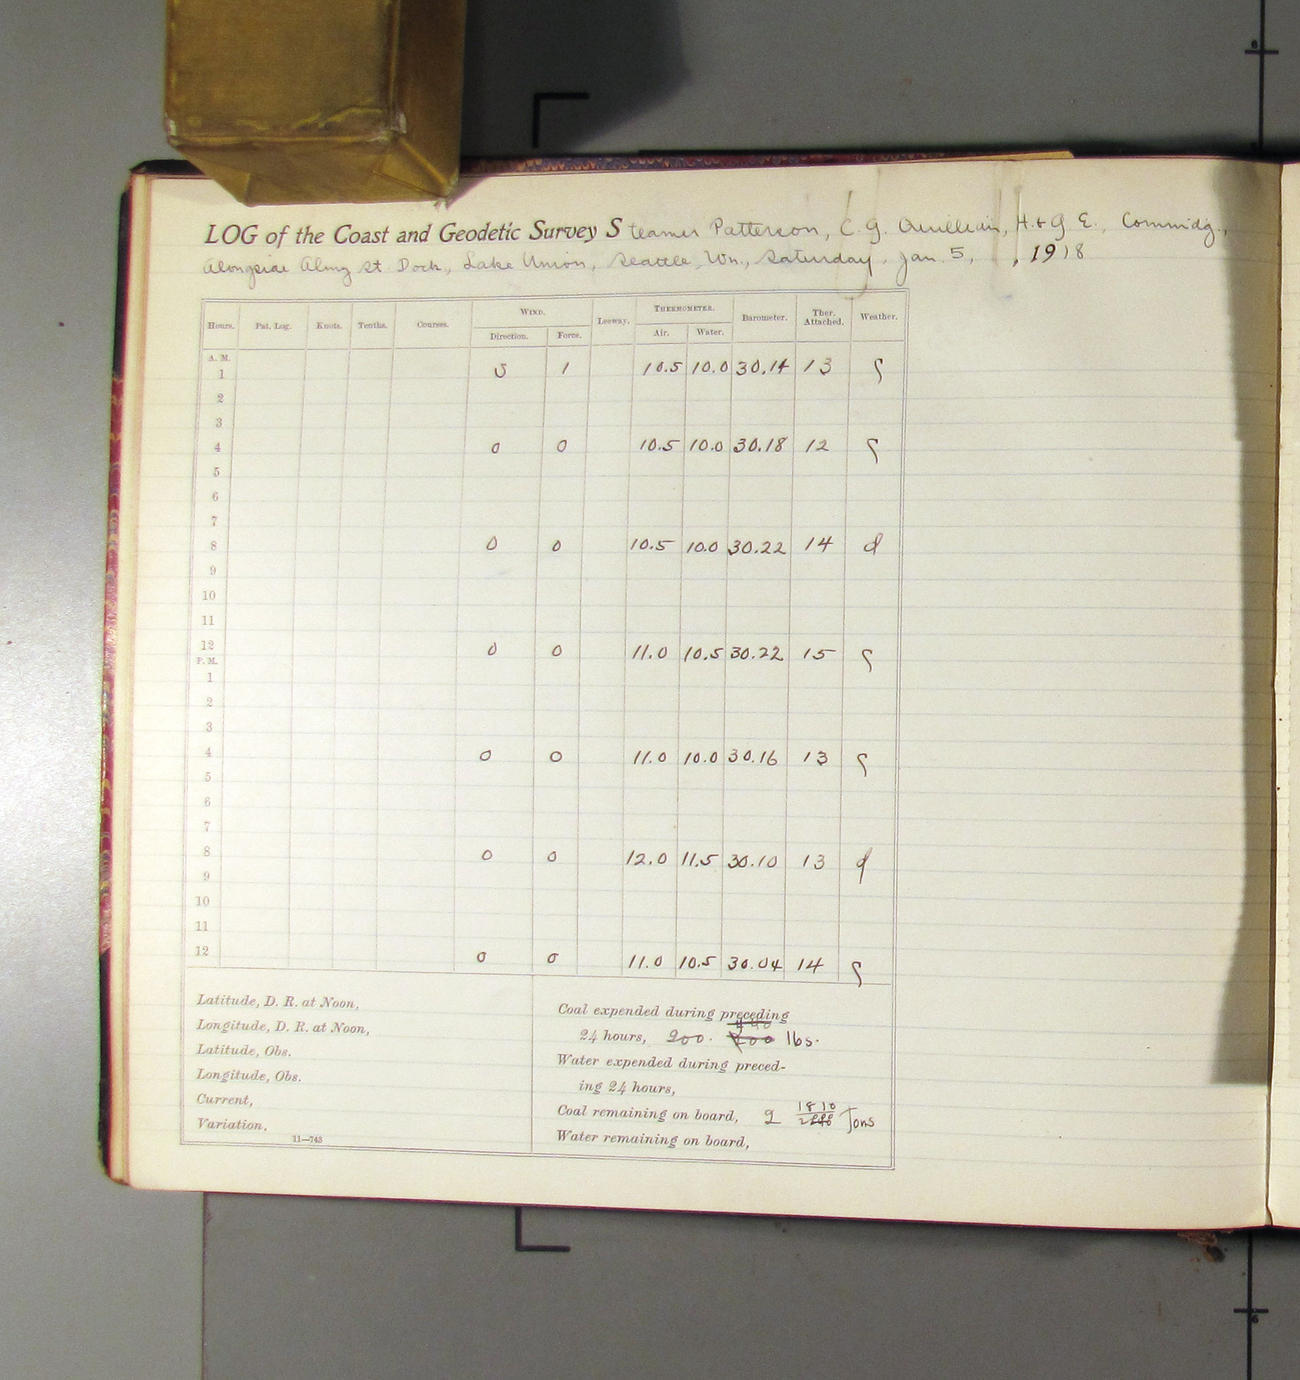 LOG of the Coast and Geodetic Survey Steamer Patterson, C. G. Quillian, H. & G. E., Commidg.,
Alongside Almy St. Dock, Lake Union, Seattle, Wn., Saturday, Jan. 5, , 1918
Hours. Pat. Log. Knots. Tenths. Courses. WIND. Leeway. THERMOMETER. Barometer. Ther. Attached. Weather.
Direction. Force. Air. Water.
A. M.
1 S 1 10.5 10.0 30.14 13
2
3
4 0 0 10.5 10.0 30.18 12
5
6
7
8 0 0 10.5 10.0 30.22 14 d
9
10
11
12 0 0 11.0 10.5 30.22 15
P. M.
1
2
3
4 0 0 11.0 10.0 30.16 13
5
6
7
8 0 0 12.0 11.5 30.10 13 d
9
10
11
12 0 0 11.0 10.5 30.04 14
Latitude, D. R. at Noon,
Longitude, D. R. at Noon,
Latitude, Obs.
Longitude, Obs.
Current,
Variation.
11—743
Coal expended during preceding
24 hours, lbs.
Water expended during preced-
ing 24 hours,
Coal remaining on board, 1810 Tons
Water remaining on board,
6
6